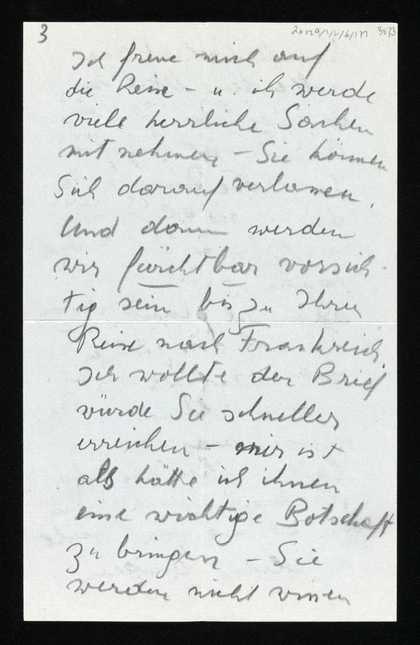 3
Ich freue mich auf
die Reise – u. ich werde
viele herrliche Sachen
mitnehmen, – Sie können
Sich darauf verlassen.
Und dann werden
wir furchtbar vorsich-
tig sein bis zu Ihrer
Reise nach Frankreich
Ich wollte der Brief
würde Sie schneller
erreichen – mir ist
als hätte ich ihnen
eine wichtige Botschaft
zu bringen – Sie
werden nicht wissen